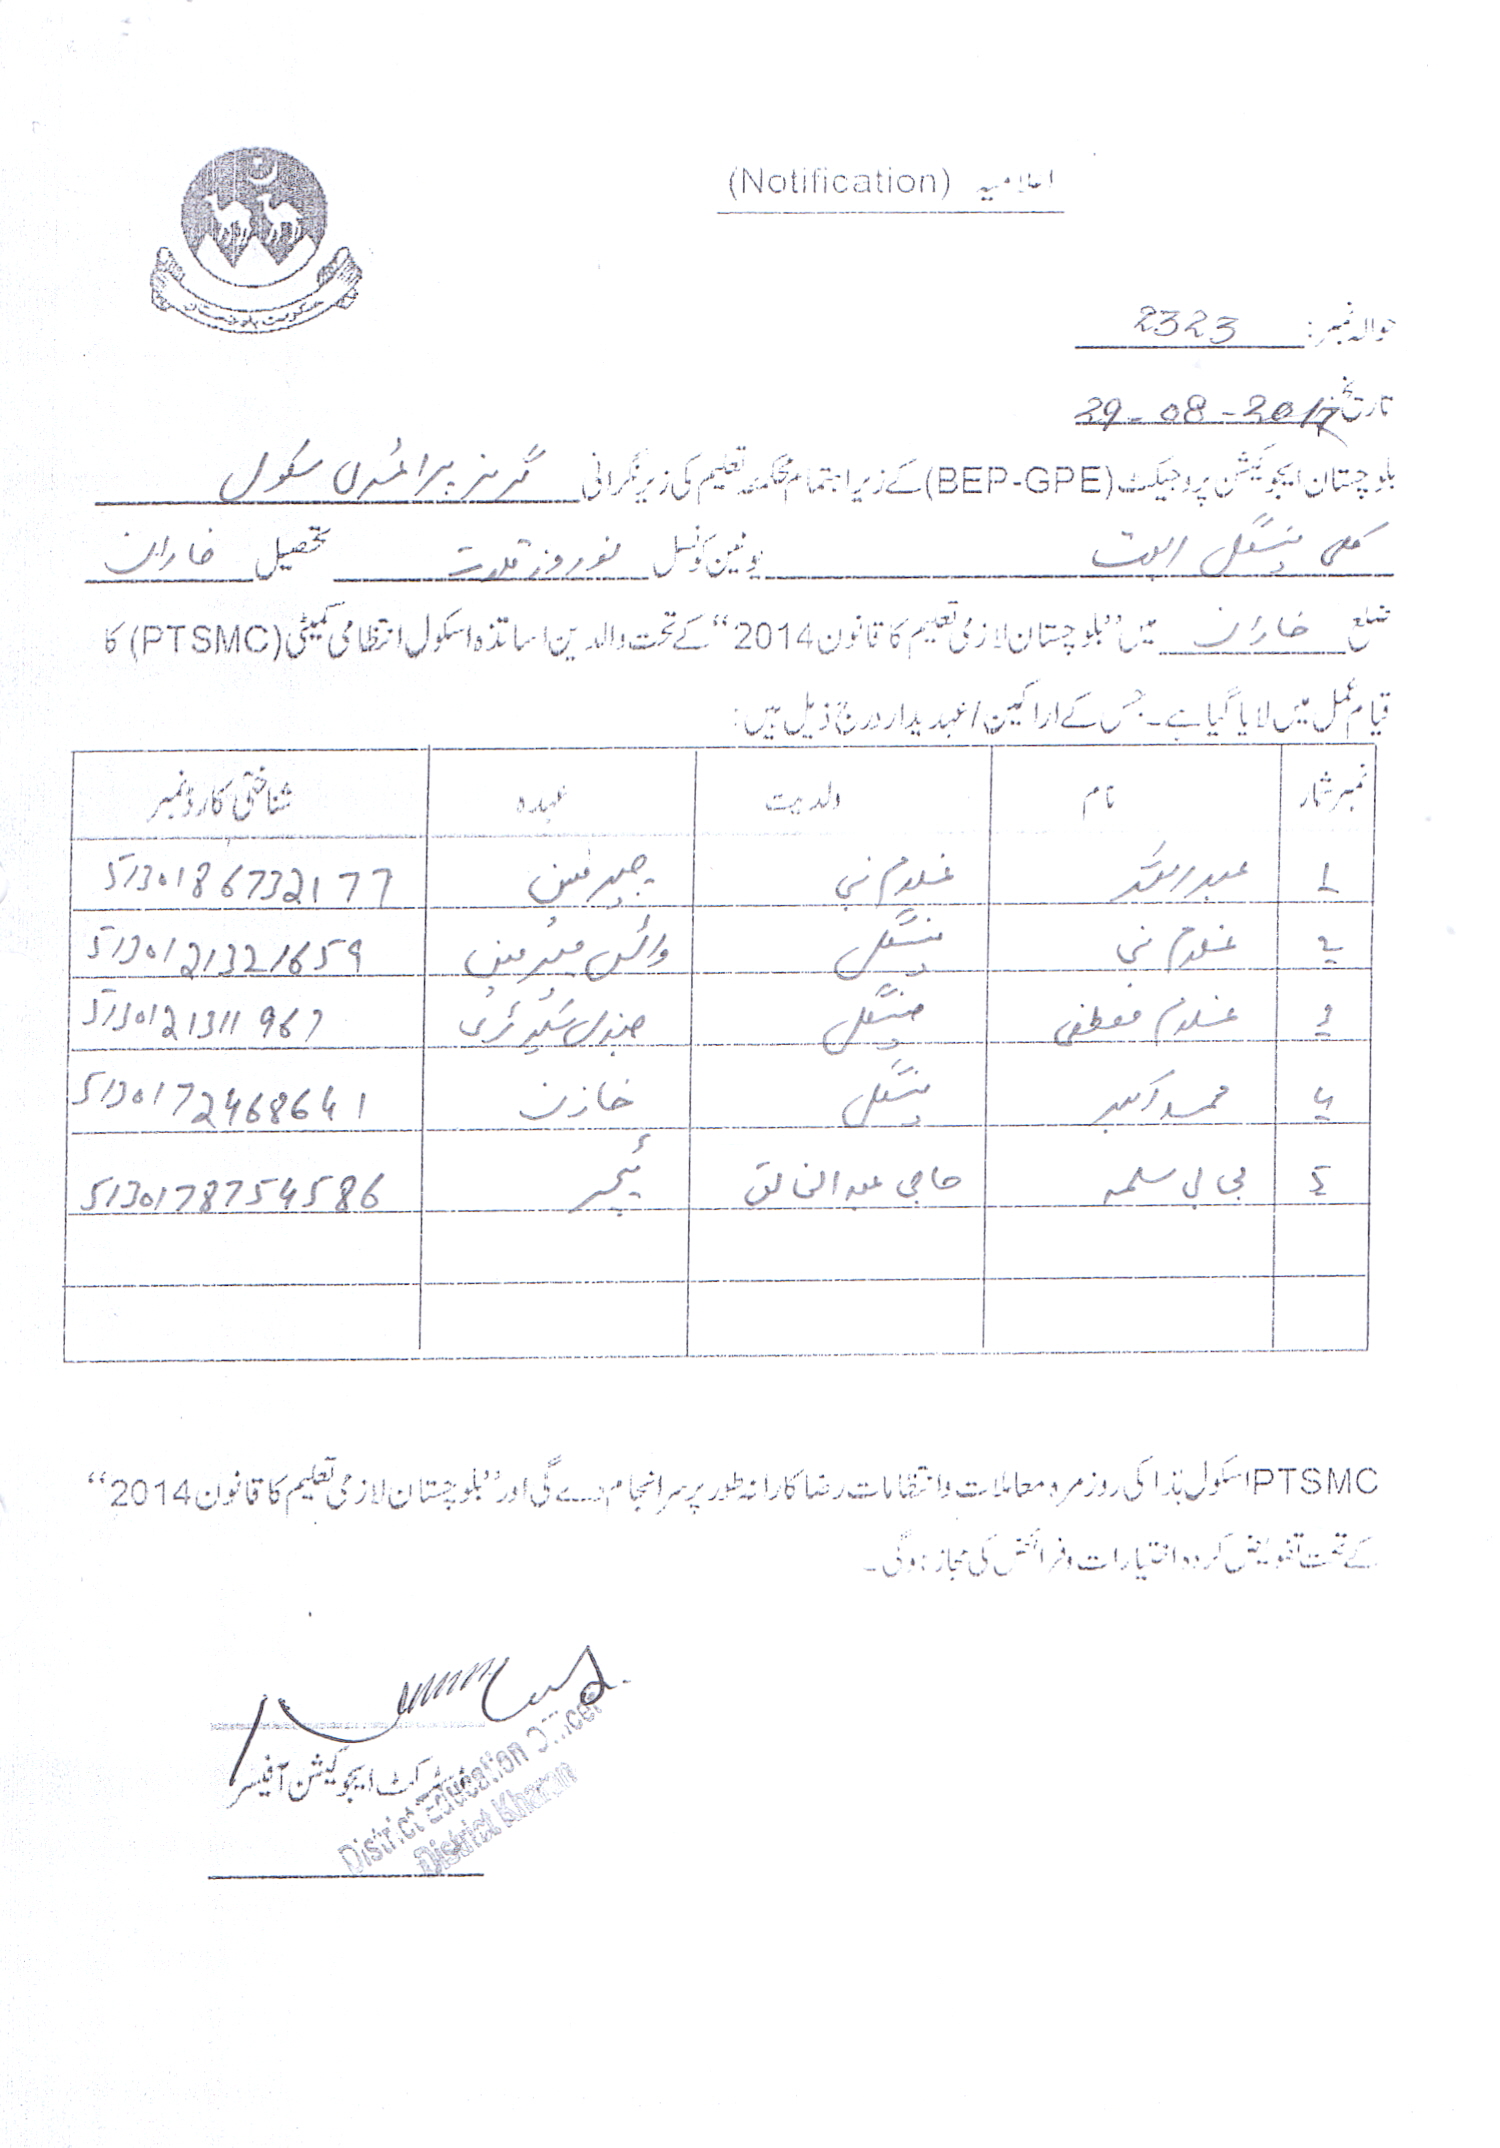 اعلامیہ (Notification)
حکومت بلوچستان
حوالہ نمبر: 2323
تاریخ 29-08-2017
بلوچستان ایجوکیشن پروجیکٹ (BEP-GPE) کے زیر اہتمام محکمہ تعلیم کی زیر نگرانی گرلز پرائمری سکول
کلی مینگل یونین کونسل نوروز قلات تحصیل خاران
ضلع خاران میں "بلوچستان لازمی تعلیم کا قانون 2014" کے تحت والدین اساتذہ اسکول انتظامی کمیٹی (PTSMC) کا
قیام عمل میں لایا گیا ہے۔ جس کے اراکین / عہدیدار درج ذیل ہیں:
نمبر شمار نام ولدیت عہدہ شناختی کارڈ نمبر
1 غلام نبی چیئرمین 5130186732177
2 غلام نبی مینگل وائس چیئرمین 5130121321659
3 غلام مصطفی مینگل جنرل سیکرٹری 5130121311967
4 محمد اکبر مینگل خازن 5130172468641
5 بی بی سلمہ حاجی عبدالخالق ٹیچر 5130178754586
PTSMC اسکول ہذا کی روزمرہ معاملات و انتظامات رضا کارانہ طور پر سرانجام دے گی اور "بلوچستان لازمی تعلیم کا قانون 2014"
کے تحت تفویض کردہ اختیارات و فرائض کی مجاز ہوگی۔
ڈسٹرکٹ ایجوکیشن آفیسر
District Education Officer
District Kharan